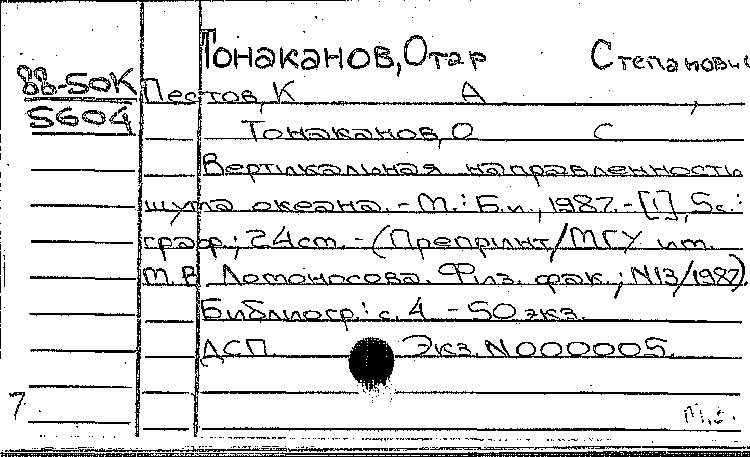 Тонаканов, Отар Степанович
88-50К Пестов, К А ,
5604 Тонаканов, О С
Вертикальная направленность
шума океана. - М.: Б.и., 1987. - [1], 5с.:
граф.; 24см. - (Препринт/МГУ им.
М.В. Ломоносова. Физ. фак.; N13/1987).
Библиогр.: с. 4 - 50 экз.
ДСП. Экз. N000005.
7